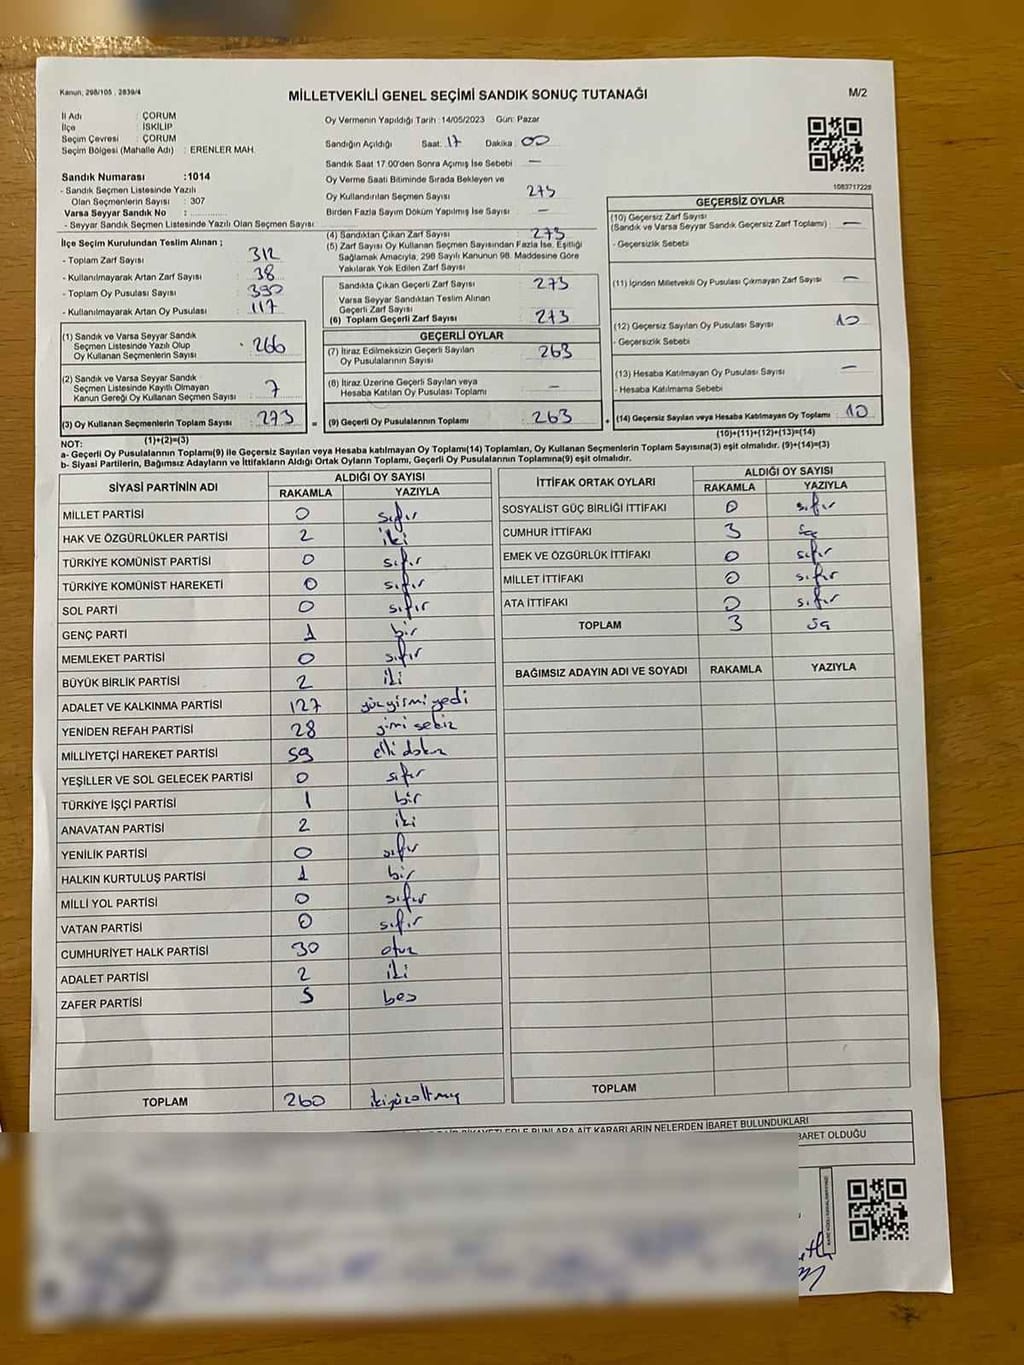 Kanun; 298/105 , 2839/4
MİLLETVEKİLİ GENEL SEÇİMİ SANDIK SONUÇ TUTANAĞI
M/2
İl Adı : ÇORUM
İlçe : İSKİLİP
Seçim Çevresi : ÇORUM
Seçim Bölgesi (Mahalle Adı) : ERENLER MAH.
Sandık Numarası :1014
- Sandık Seçmen Listesinde Yazılı
Olan Seçmenlerin Sayısı : 307
Varsa Seyyar Sandık No :
- Seyyar Sandık Seçmen Listesinde Yazılı Olan Seçmen Sayısı
Oy Vermenin Yapıldığı Tarih :14/05/2023 Gün: Pazar
Sandığın Açıldığı Saat: 17 Dakika: 00
Sandık Saat 17.00'den Sonra Açımış İse Sebebi —
Oy Verme Saati Bitiminde Sırada Bekleyen ve
Oy Kullandırılan Seçmen Sayısı 273
Birden Fazla Sayım Döküm Yapılmış İse Sayısı —
1083717228
İlçe Seçim Kurulundan Teslim Alınan ;
- Toplam Zarf Sayısı 312
- Kullanılmayarak Artan Zarf Sayısı 38
- Toplam Oy Pusulası Sayısı 390
- Kullanılmayarak Artan Oy Pusulası 117
(1) Sandık ve Varsa Seyyar Sandık
Seçmen Listesinde Yazılı Olup
Oy Kullanan Seçmenlerin Sayısı 266
(2) Sandık ve Varsa Seyyar Sandık
Seçmen Listesinde Kayıtlı Olmayan
Kanun Gereği Oy Kullanan Seçmen Sayısı 7
(3) Oy Kullanan Seçmenlerin Toplam Sayısı 273
(1)+(2)=(3)
(4) Sandıktan Çıkan Zarf Sayısı 273
(5) Zarf Sayısı Oy Kullanan Seçmen Sayısından Fazla İse, Eşitliği
Sağlamak Amacıyla, 298 Sayılı Kanunun 98. Maddesine Göre
Yakılarak Yok Edilen Zarf Sayısı
Sandıkta Çıkan Geçerli Zarf Sayısı 273
Varsa Seyyar Sandıktan Teslim Alınan
Geçerli Zarf Sayısı
(6) Toplam Geçerli Zarf Sayısı 273
GEÇERLİ OYLAR
(7) İtiraz Edilmeksizin Geçerli Sayılan
Oy Pusulalarının Sayısı 263
(8) İtiraz Üzerine Geçerli Sayılan veya
Hesaba Katılan Oy Pusulası Toplamı —
= (9) Geçerli Oy Pusulalarının Toplamı 263
GEÇERSİZ OYLAR
(10) Geçersiz Zarf Sayısı
(Sandık ve Varsa Seyyar Sandık Geçersiz Zarf Toplamı) —
- Geçersizlik Sebebi
(11) İçinden Milletvekili Oy Pusulası Çıkmayan Zarf Sayısı —
(12) Geçersiz Sayılan Oy Pusulası Sayısı 10
- Geçersizlik Sebebi
(13) Hesaba Katılmayan Oy Pusulası Sayısı —
- Hesaba Katılmama Sebebi
+ (14) Geçersiz Sayılan veya Hesaba Katılmayan Oy Toplamı 10
(10)+(11)+(12)+(13)=(14)
NOT:
a- Geçerli Oy Pusulalarının Toplamı(9) ile Geçersiz Sayılan veya Hesaba katılmayan Oy Toplamı(14) Toplamları, Oy Kullanan Seçmenlerin Toplam Sayısına(3) eşit olmalıdır. (9)+(14)=(3)
b- Siyasi Partilerin, Bağımsız Adayların ve İttifakların Aldığı Ortak Oyların Toplamı, Geçerli Oy Pusulalarının Toplamına(9) eşit olmalıdır.
SİYASİ PARTİNİN ADI ALDIĞI OY SAYISI
RAKAMLA YAZIYLA
MİLLET PARTİSİ 0 sıfır
HAK VE ÖZGÜRLÜKLER PARTİSİ 2 iki
TÜRKİYE KOMÜNİST PARTİSİ 0 sıfır
TÜRKİYE KOMÜNİST HAREKETİ 0 sıfır
SOL PARTİ 0 sıfır
GENÇ PARTİ 1 bir
MEMLEKET PARTİSİ 0 sıfır
BÜYÜK BİRLİK PARTİSİ 2 iki
ADALET VE KALKINMA PARTİSİ 127 yüzyirmiyedi
YENİDEN REFAH PARTİSİ 28 yirmi sekiz
MİLLİYETÇİ HAREKET PARTİSİ 59 elli dokuz
YEŞİLLER VE SOL GELECEK PARTİSİ 0 sıfır
TÜRKİYE İŞÇİ PARTİSİ 1 bir
ANAVATAN PARTİSİ 2 iki
YENİLİK PARTİSİ 0 sıfır
HALKIN KURTULUŞ PARTİSİ 1 bir
MİLLİ YOL PARTİSİ 0 sıfır
VATAN PARTİSİ 0 sıfır
CUMHURİYET HALK PARTİSİ 30 otuz
ADALET PARTİSİ 2 iki
ZAFER PARTİSİ 5 beş
TOPLAM 260 ikiyüzaltmış
İTTİFAK ORTAK OYLARI ALDIĞI OY SAYISI
RAKAMLA YAZIYLA
SOSYALİST GÜÇ BİRLİĞİ İTTİFAKI 0 sıfır
CUMHUR İTTİFAKI 3 üç
EMEK VE ÖZGÜRLÜK İTTİFAKI 0 sıfır
MİLLET İTTİFAKI 0 sıfır
ATA İTTİFAKI 0 sıfır
TOPLAM 3 üç
BAĞIMSIZ ADAYIN ADI VE SOYADI RAKAMLA YAZIYLA
TOPLAM
BUNLARA AİT KARARLARIN NELERDEN İBARET BULUNDUKLARI
BARET OLDUĞU